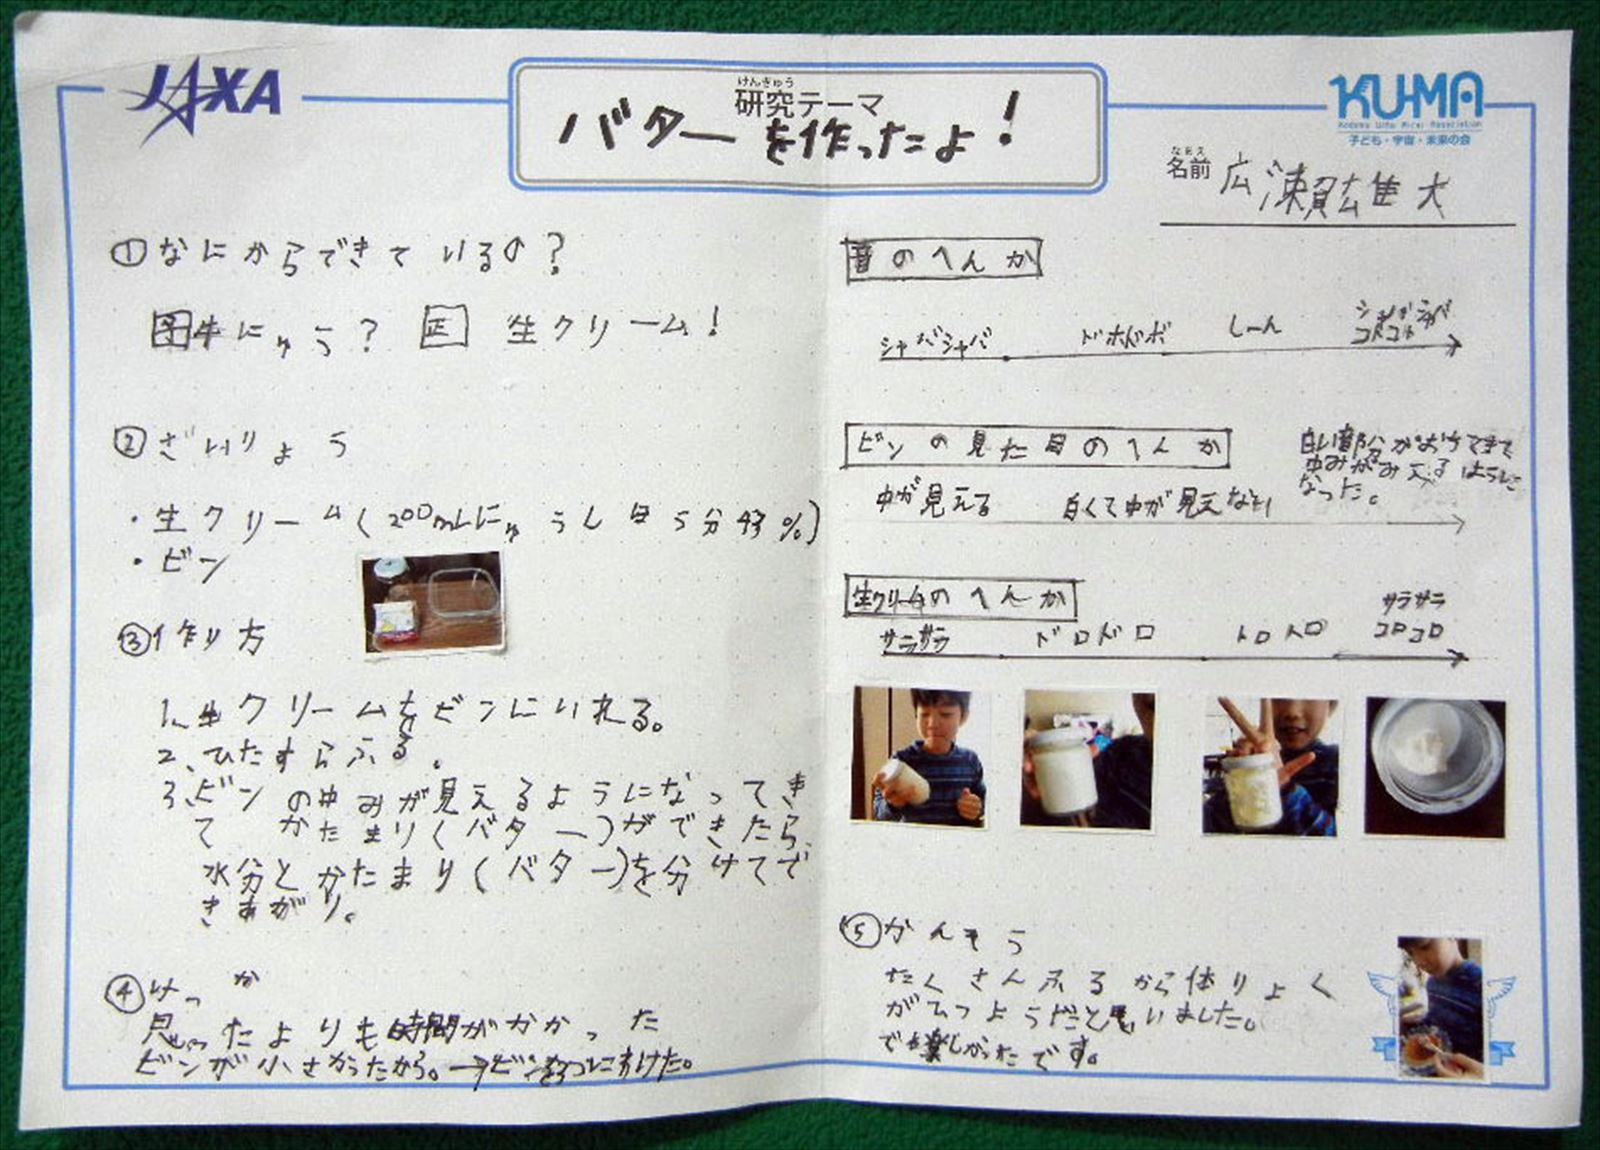 JAXA
けんきゅう
研究テーマ
バターを作ったよ！
KU-MA
Kodomo Uchu Mirai Association
子ども・宇宙・未来の会
なまえ
名前 広瀬雄大
①なにからできているの？
予 牛にゅう？ 正 生クリーム！
②ざいりょう
・生クリーム(200mLにゅうしぼう分43%)
・ビン
③作り方
1、生クリームをビンにいれる。
2、ひたすらふる。
3、ビンの中みが見えるようになってき
て かたまり(バター)ができたら、
水分とかたまり(バター)を分けてで
きあがり。
④けっか
思ったよりも時間がかかった
ビンが小さかったから。→ビンを2つにわけた。
音のへんか
シャバシャバ ドボドボ しーん シャバシャバ
コトコト
ビンの見た目のへんか
中が見える 白くて中が見えない 白い部分がおちてきて
中みがみえるように
なった。
生クリームのへんか
サラサラ ドロドロ トロトロ サラサラ
コロコロ
⑤かんそう
たくさんふるから体りょく
がひつようだと思いました。
でも楽しかったです。